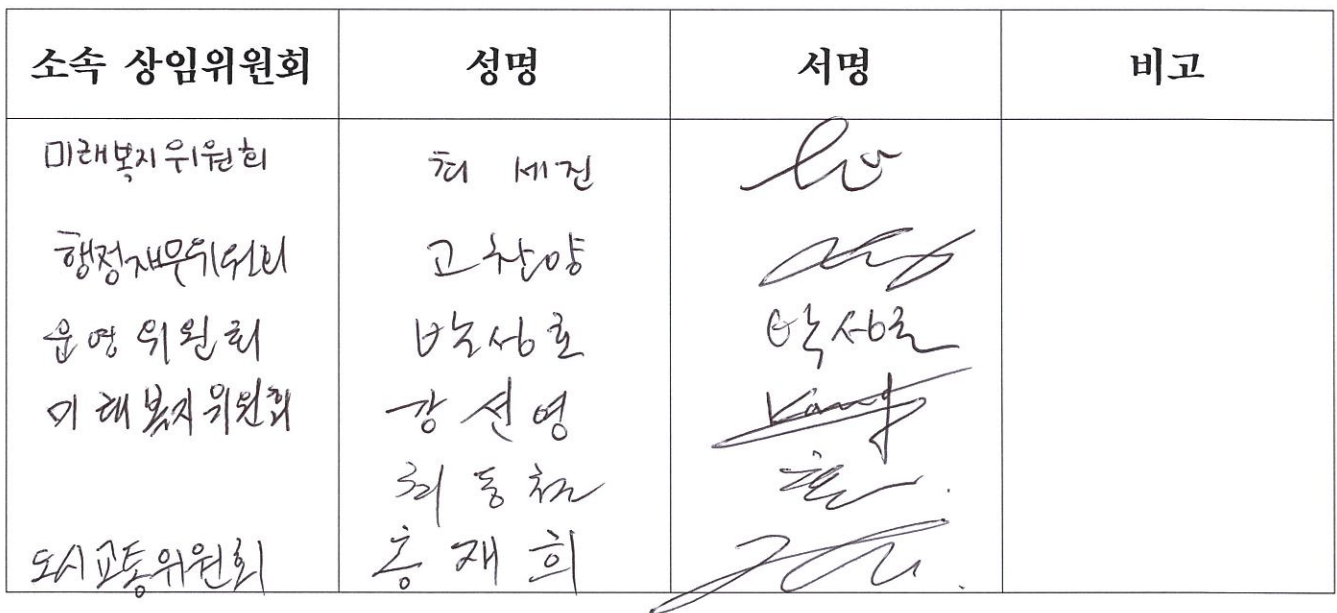 소속 상임위원회 성명 서명 비고
미래복지위원회 최 세진
행정재무위원회 고찬양
운영위원회 박성호 박성호
미래복지위원회 강선영 Kang
최동철
도시교통위원회 홍재희